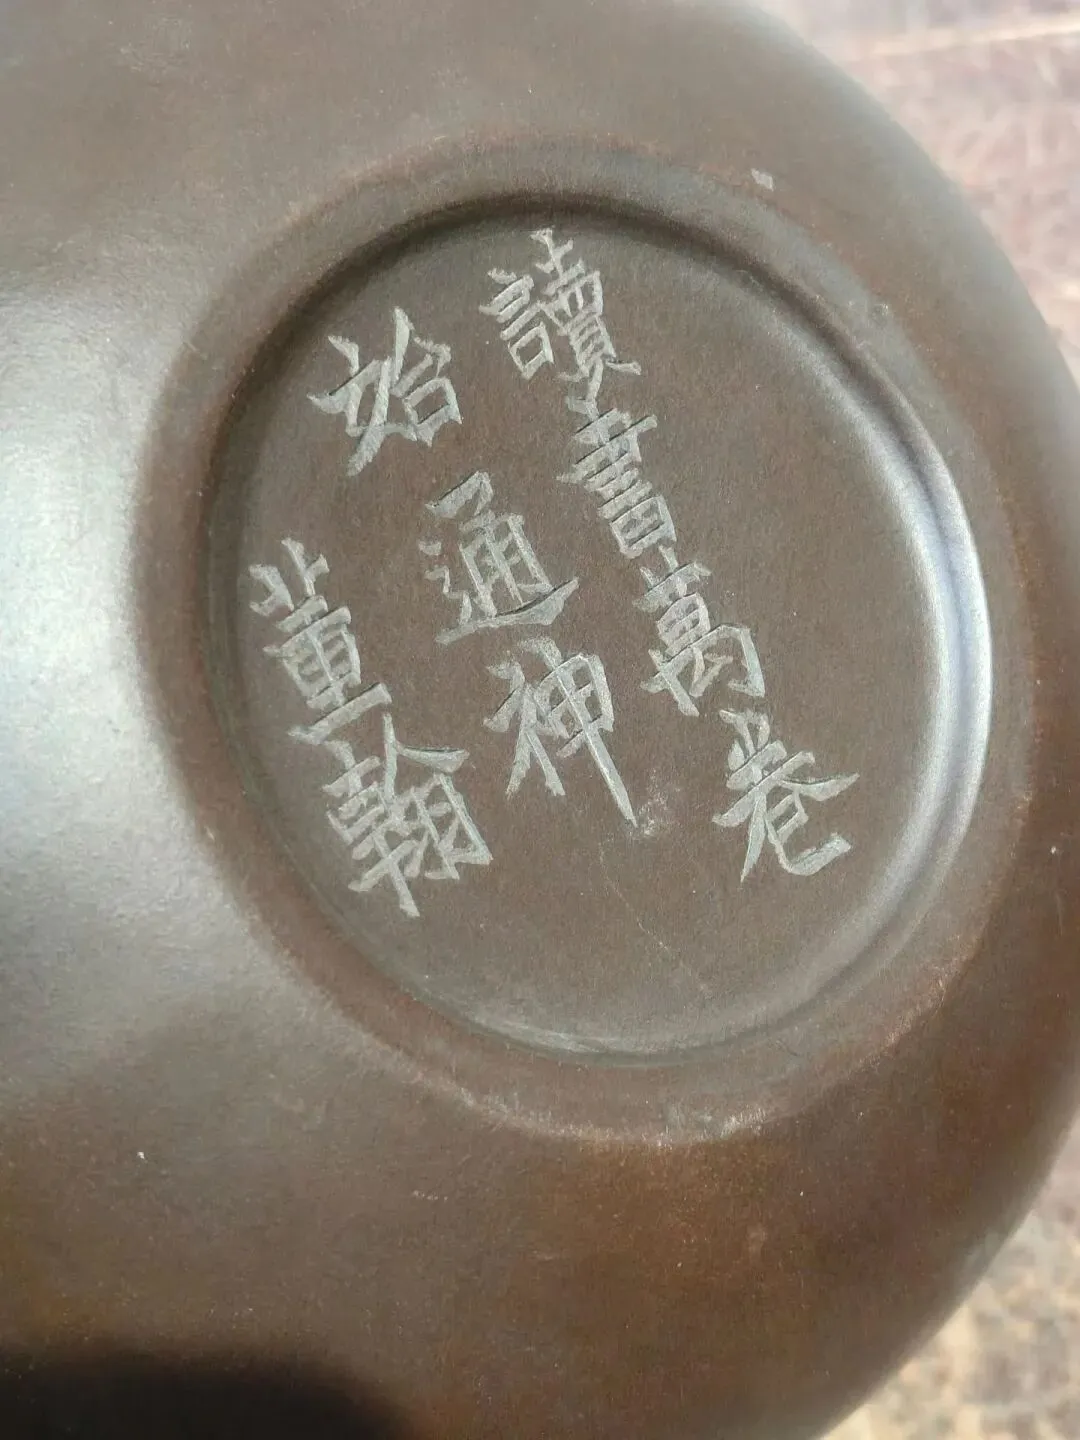 讀書萬卷
始通神
董翰